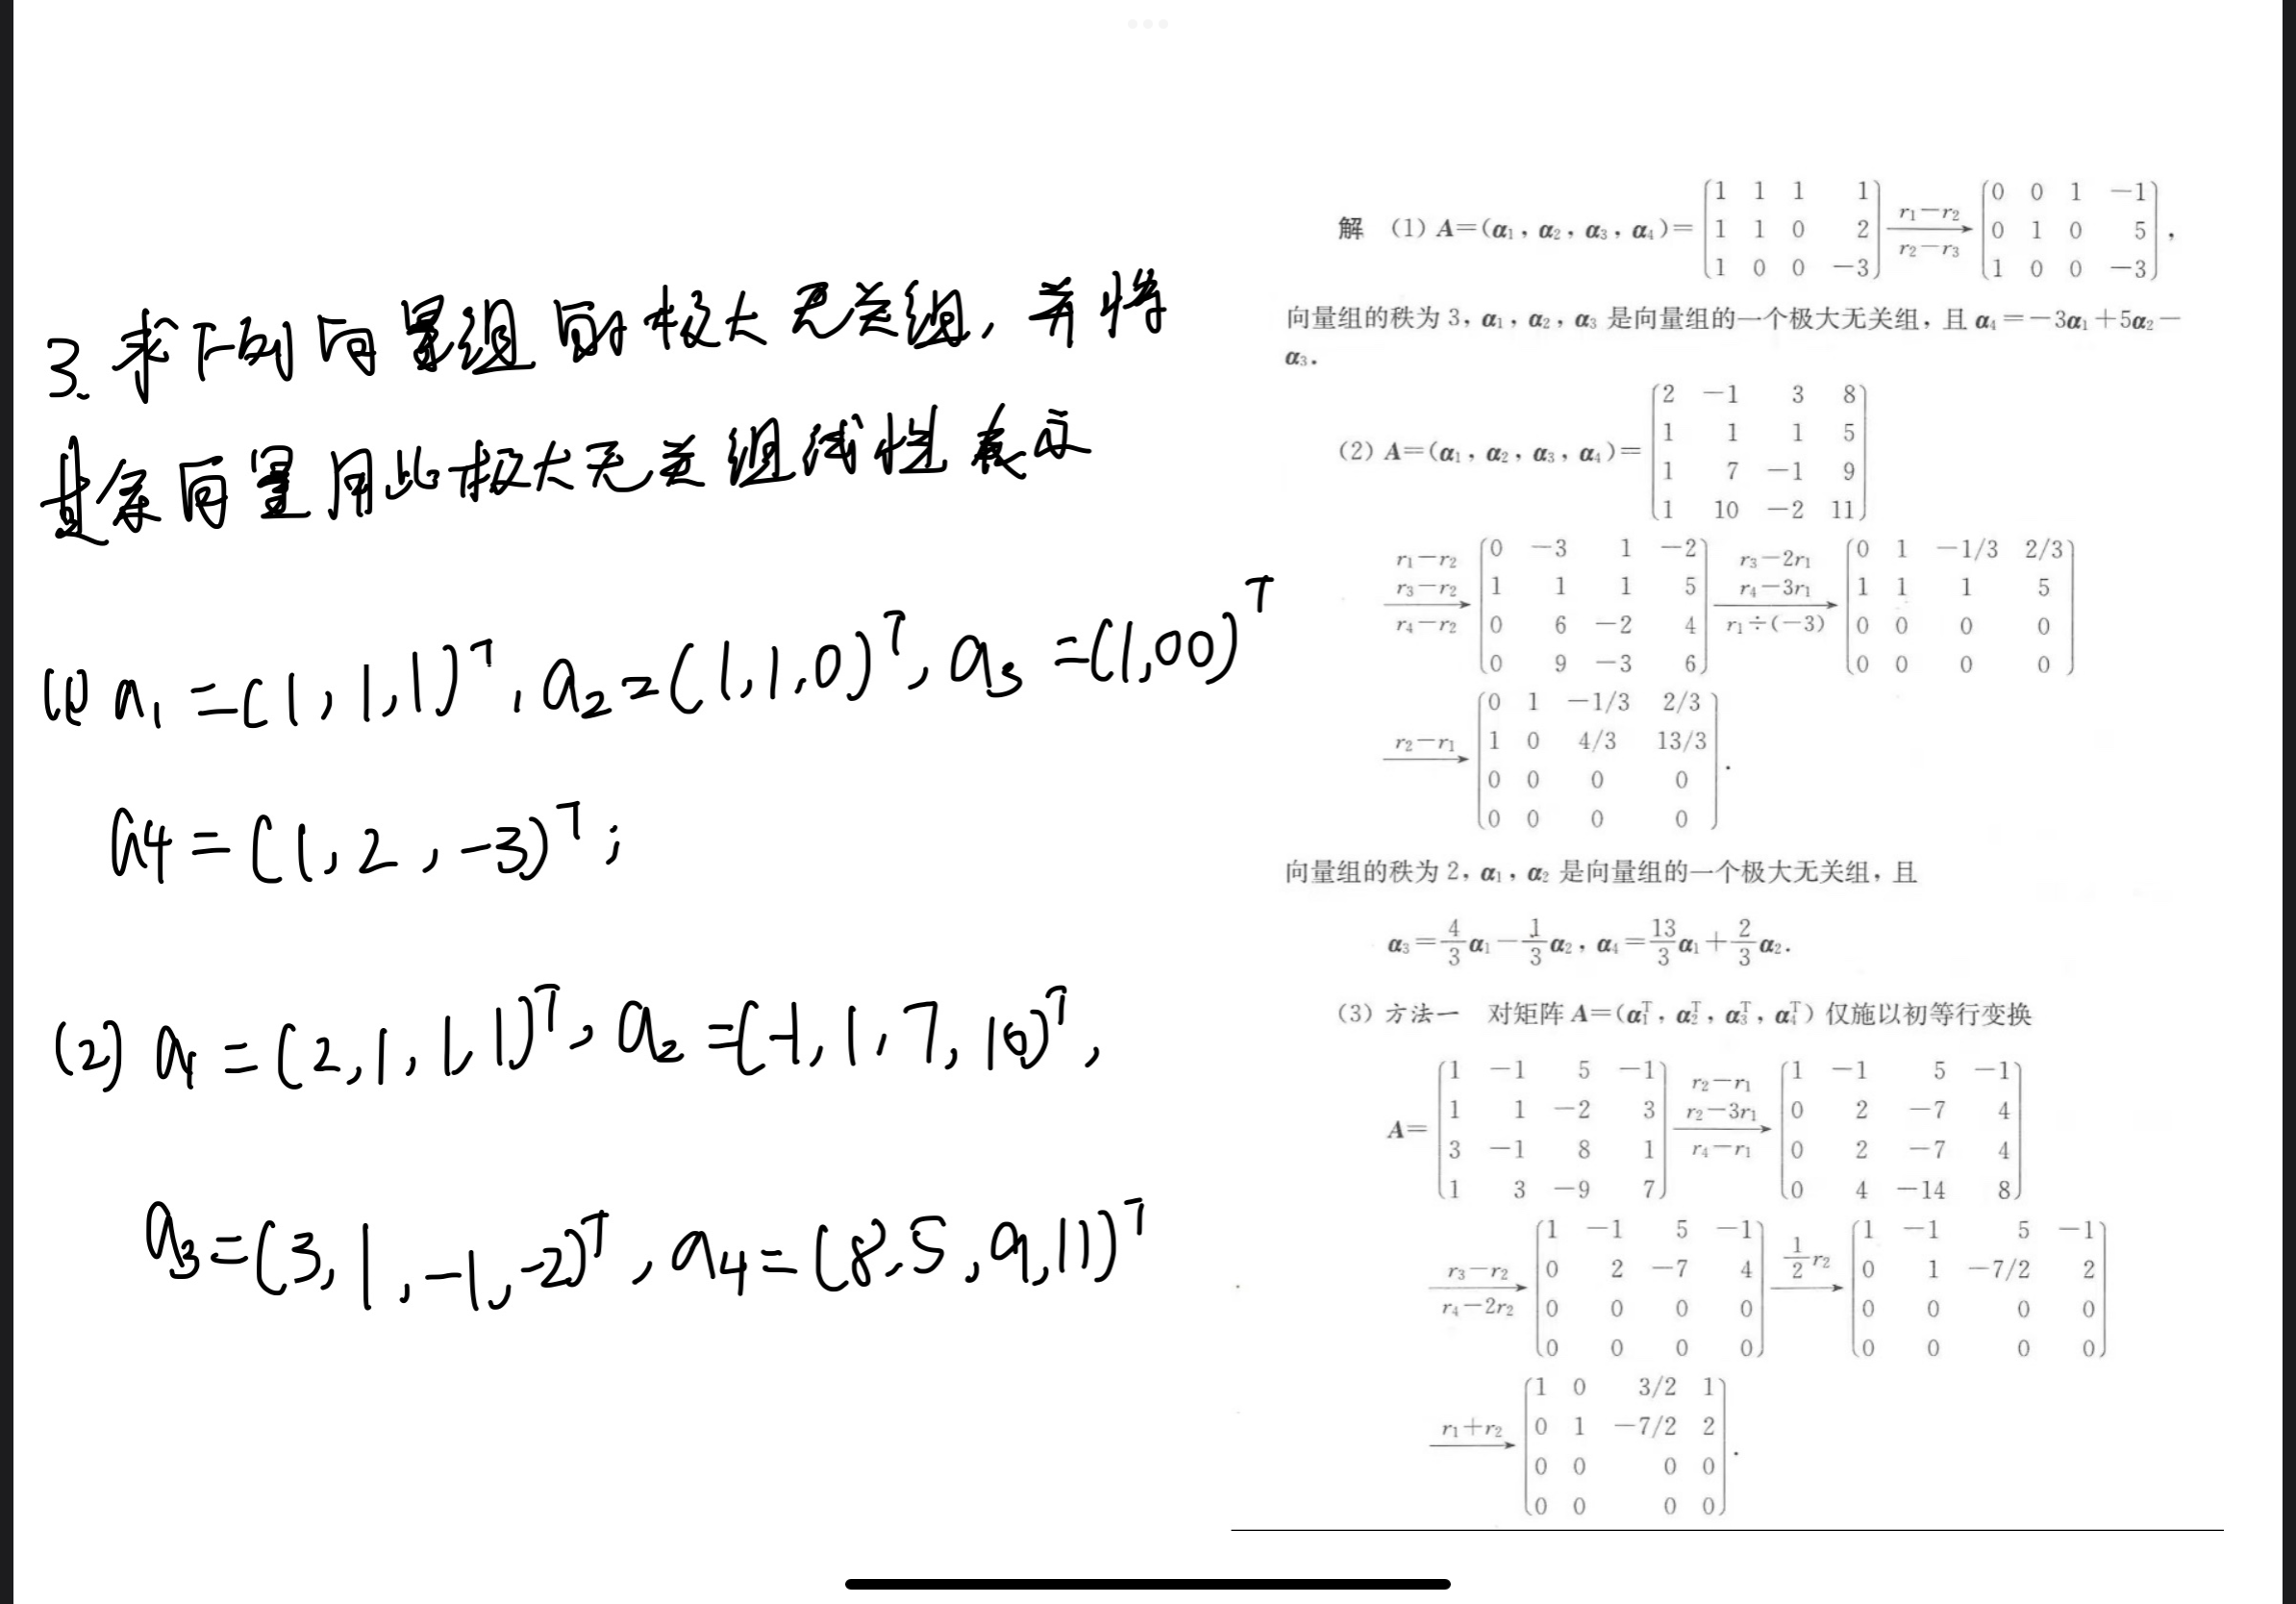 3. 求下列向量组的极大无关组, 并将
其余向量用此极大无关组线性表示
(1) a₁ = (1, 1, 1)ᵀ, a₂ = (1, 1, 0)ᵀ, a₃ = (1, 00)ᵀ
a4 = (1, 2, -3)ᵀ;
(2) a₁ = (2, 1, 1, 1)ᵀ, a₂ = (-1, 1, 7, 10)ᵀ,
a₃ = (3, 1, -1, -2)ᵀ, a₄ = (8, 5, 9, 11)ᵀ
解 (1) A=(α₁, α₂, α₃, α₄)=
1 1 1 1
1 1 0 2
1 0 0 −3
r₁−r₂
r₂−r₃
0 0 1 −1
0 1 0 5
1 0 0 −3
,
向量组的秩为 3, α₁, α₂, α₃ 是向量组的一个极大无关组, 且 α₄=−3α₁+5α₂−
α₃.
(2) A=(α₁, α₂, α₃, α₄)=
2 −1 3 8
1 1 1 5
1 7 −1 9
1 10 −2 11
r₁−r₂
r₃−r₂
r₄−r₂
0 −3 1 −2
1 1 1 5
0 6 −2 4
0 9 −3 6
r₃−2r₁
r₄−3r₁
r₁÷(−3)
0 1 −1/3 2/3
1 1 1 5
0 0 0 0
0 0 0 0
r₂−r₁
0 1 −1/3 2/3
1 0 4/3 13/3
0 0 0 0
0 0 0 0
.
向量组的秩为 2, α₁, α₂ 是向量组的一个极大无关组, 且
α₃=4/3α₁−1/3α₂, α₄=13/3α₁+2/3α₂.
(3) 方法一 对矩阵 A=(α₁ᵀ, α₂ᵀ, α₃ᵀ, α₄ᵀ) 仅施以初等行变换
A=
1 −1 5 −1
1 1 −2 3
3 −1 8 1
1 3 −9 7
r₂−r₁
r₂−3r₁
r₄−r₁
1 −1 5 −1
0 2 −7 4
0 2 −7 4
0 4 −14 8
r₃−r₂
r₄−2r₂
1 −1 5 −1
0 2 −7 4
0 0 0 0
0 0 0 0
1/2r₂
1 −1 5 −1
0 1 −7/2 2
0 0 0 0
0 0 0 0
r₁+r₂
1 0 3/2 1
0 1 −7/2 2
0 0 0 0
0 0 0 0
.